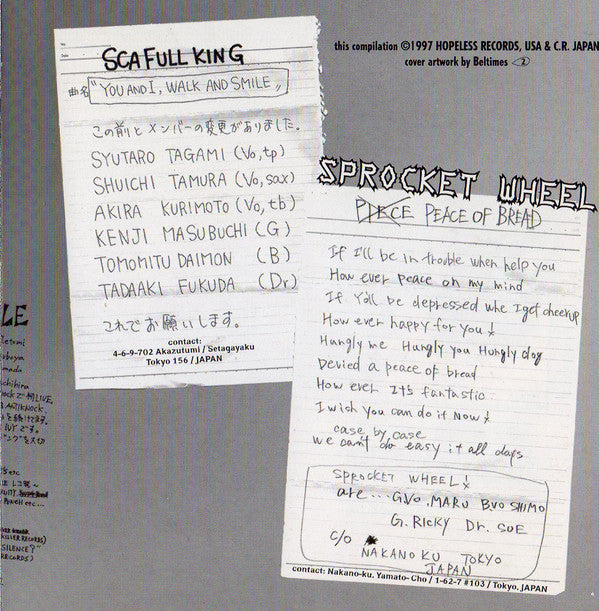 this compilation ©1997 HOPELESS RECORDS, USA & C.R. JAPAN
cover artwork by Beltimes
SCAFULL KING
曲名 "YOU AND I, WALK AND SMILE"
この前とメンバーの変更がありました。
SYUTARO TAGAMI (Vo, tp)
SHUICHI TAMURA (Vo, sax)
AKIRA KURIMOTO (Vo, tb)
KENJI MASUBUCHI (G)
TOMOMITU DAIMON (B)
TADAAKI FUKUDA (Dr)
これでお願いします。
contact:
4-6-9-702 Akazutumi / Setagayaku
Tokyo 156 / JAPAN
SPROCKET WHEEL
PIECE PEACE OF BREAD
If I'll be in trouble when help you
How ever peace on my mind
If You'll be depressed whe I get cheerup
How ever happy for you!
Hungly me Hungly you Hungly dog
Devied a peace of bread
How ever It's fantastic
I wish you can do it Now!
case by case
we can't do easy it all days
SPROCKET WHEEL!
are... G.Vo. MARU B.Vo SHIMO
G. RICKY Dr. SUE
C/O
NAKANO KU TOKYO
JAPAN
contact: Nakano-ku. Yamato- Cho / 1-62-7 #103 / Tokyo. JAPAN
LE
ANTIKNOCK
です。
etc
etc...
KILLER RECORDS)
SILENCE?"
RECORDS)